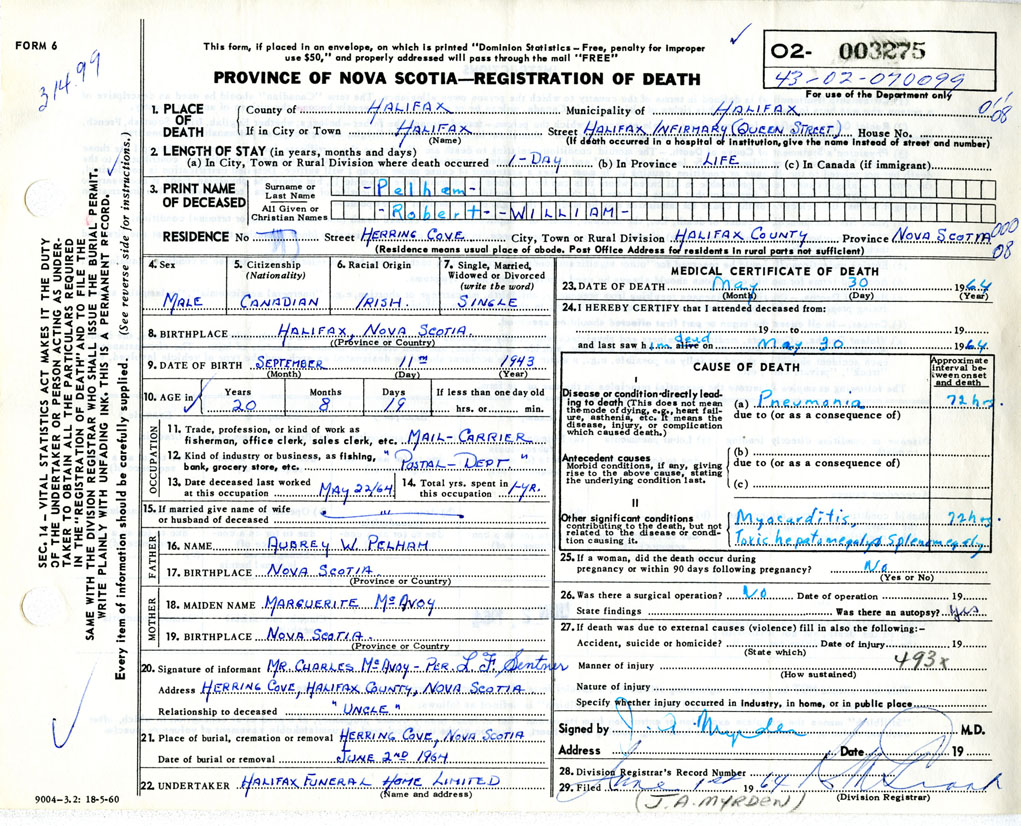 FORM 6
314.99
This form, if placed in an envelope, on which is printed "Dominion Statistics – Free, penalty for improper
use $50," and properly addressed will pass through the mail "FREE"
PROVINCE OF NOVA SCOTIA—REGISTRATION OF DEATH
02- 003275
43-02-070099
For use of the Department only
SEC. 14 – VITAL STATISTICS ACT MAKES IT THE DUTY
OF THE UNDERTAKER OR PERSON ACTING AS UNDER-
TAKER TO OBTAIN ALL THE PARTICULARS REQUIRED
IN THE "REGISTRATION OF DEATH" AND TO FILE THE
SAME WITH THE DIVISION REGISTRAR WHO SHALL ISSUE THE BURIAL PERMIT.
WRITE PLAINLY WITH UNFADING INK. THIS IS A PERMANENT RECORD.
Every item of information should be carefully supplied. (See reverse side for instructions.)
1. PLACE OF DEATH County of HALIFAX Municipality of HALIFAX 08
If in City or Town HALIFAX (Name) Street HALIFAX INFIRMARY (QUEEN STREET) House No.
(If death occurred in a hospital or institution, give the name instead of street and number)
2. LENGTH OF STAY (in years, months and days)
(a) In City, Town or Rural Division where death occurred 1-DAY (b) In Province LIFE (c) In Canada (if immigrant)
3. PRINT NAME OF DECEASED Surname or Last Name -Pelham-
All Given or Christian Names -Robert--WILLIAM-
RESIDENCE No Street HERRING COVE City, Town or Rural Division HALIFAX COUNTY Province NOVA SCOTIA 000 08
(Residence means usual place of abode. Post Office Address for residents in rural parts not sufficient)
4. Sex MALE
5. Citizenship (Nationality) CANADIAN
6. Racial Origin IRISH.
7. Single, Married, Widowed or Divorced (write the word) SINGLE
8. BIRTHPLACE HALIFAX, NOVA SCOTIA
(Province or Country)
9. DATE OF BIRTH SEPTEMBER 11TH 1943
(Month) (Day) (Year)
10. AGE in Years 20 Months 8 Days 19 If less than one day old hrs. or min.
OCCUPATION
11. Trade, profession, or kind of work as
fisherman, office clerk, sales clerk, etc. MAIL-CARRIER
12. Kind of industry or business, as fishing,
bank, grocery store, etc. "POSTAL-DEPT."
13. Date deceased last worked
at this occupation MAY 22/64
14. Total yrs. spent in
this occupation 1-YR.
15. If married give name of wife
or husband of deceased
FATHER
16. NAME AUBREY W. PELHAM
17. BIRTHPLACE NOVA SCOTIA
(Province or Country)
MOTHER
18. MAIDEN NAME MARGUERITE McAVOY
19. BIRTHPLACE NOVA SCOTIA.
(Province or Country
20. Signature of informant MR CHARLES McAVOY - PER L.F. Sentner
Address HERRING COVE, HALIFAX COUNTY, NOVA SCOTIA
Relationship to deceased "UNCLE"
21. Place of burial, cremation or removal HERRING COVE, NOVA SCOTIA
Date of burial or removal JUNE 2ND 1964
22. UNDERTAKER HALIFAX FUNERAL HOME LIMITED
(Name and address)
9004-3.2: 18-5-60
MEDICAL CERTIFICATE OF DEATH
23. DATE OF DEATH May 30 1964
(Month) (Day) (Year)
24. I HEREBY CERTIFY that I attended deceased from:
19 to 19
and last saw him alive dead on May 30 1964.
CAUSE OF DEATH
Approximate interval between onset and death
I
Disease or condition directly leading to death (This does not mean
the mode of dying, e.g., heart failure, asthenia, etc. It means the
disease, injury, or complication
which caused death.)
(a) Pneumonia 72 hrs.
due to (or as a consequence of)
Antecedent causes
Morbid conditions, if any, giving
rise to the above cause, stating
the underlying condition last.
(b)
due to (or as a consequence of)
(c)
II
Other significant conditions
contributing to the death, but not
related to the disease or condition causing it.
Myocarditis, 72 hrs
toxic hepatomegaly, splenomegaly
25. If a woman, did the death occur during
pregnancy or within 90 days following pregnancy? No
(Yes or No)
26. Was there a surgical operation? No Date of operation 19
State findings Was there an autopsy? Yes
27. If death was due to external causes (violence) fill in also the following:–
Accident, suicide or homicide? Date of injury 19
(State which) 493x
Manner of injury
(How sustained)
Nature of injury
Specify whether injury occurred in industry, in home, or in public place
Signed by J. A. Myrden M.D.
Address Date 19
28. Division Registrar's Record Number
29. Filed June 1st 1964
(Division Registrar)
(J.A. MYRDEN)